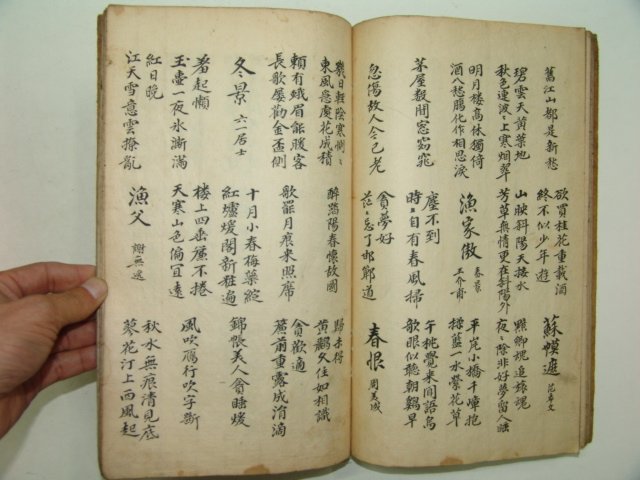 舊江山都是新愁
欲買桂花重載酒
終不似少年遊
蘇幕遮 范希文
碧雲天黃葉地
秋色連波〻上寒烟翠
山映斜陽天接水
芳草無情更在斜陽外
黯鄕魂追旅魂
夜〻除非好夢留人睡
明月樓高休獨倚
酒入愁膓化作相思淚
漁家傲 春景 王介甫
平岸小橋千嶂抱
揉藍一水縈花草
茅屋數間窓窈窕
塵不到
時〻自有春風掃
午枕覺來聞語鳥
欹眠似聽朝鷄早
忽憶故人今已老
貪夢好
茫〻忘了邯鄲道
春恨 周美成
幾日輕陰寒惻〻
東風急處花成積
醉踏陽春懷故國
歸未得
黃鸝久住如相識
賴有蛾眉能暖客
長歌屢勸金盃側
歌罷月痕來照席
貪歡適
簾前重露成涓滴
冬景 六一居士
十月小春梅蘂綻
紅爐煖閣新粧遍
錦帳美人貪睡煖
羞起懶
玉壺一夜氷澌滿
樓上四垂簾不捲
天寒山色偏宜遠
風吹鴈行吹字斷
紅日晩
江天雪意雲撩亂
漁父 謝無逸
秋水無痕清見底
蓼花汀上西風起